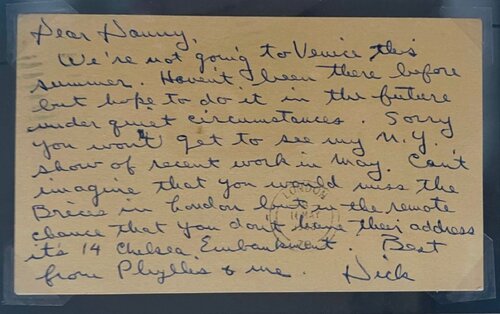 Dear Danny,
We're not going to Venice this
summer. Haven't been there before
but hope to do it in the future
under quiet circumstances. Sorry
you won't get to see my N.Y.
show of recent work in May. Can't
imagine that you would miss the
Brices in London but in the remote
chance that you don't have their address
it's 14 Chelsea Embankment. Best
from Phyllis & me. Dick
LONDON